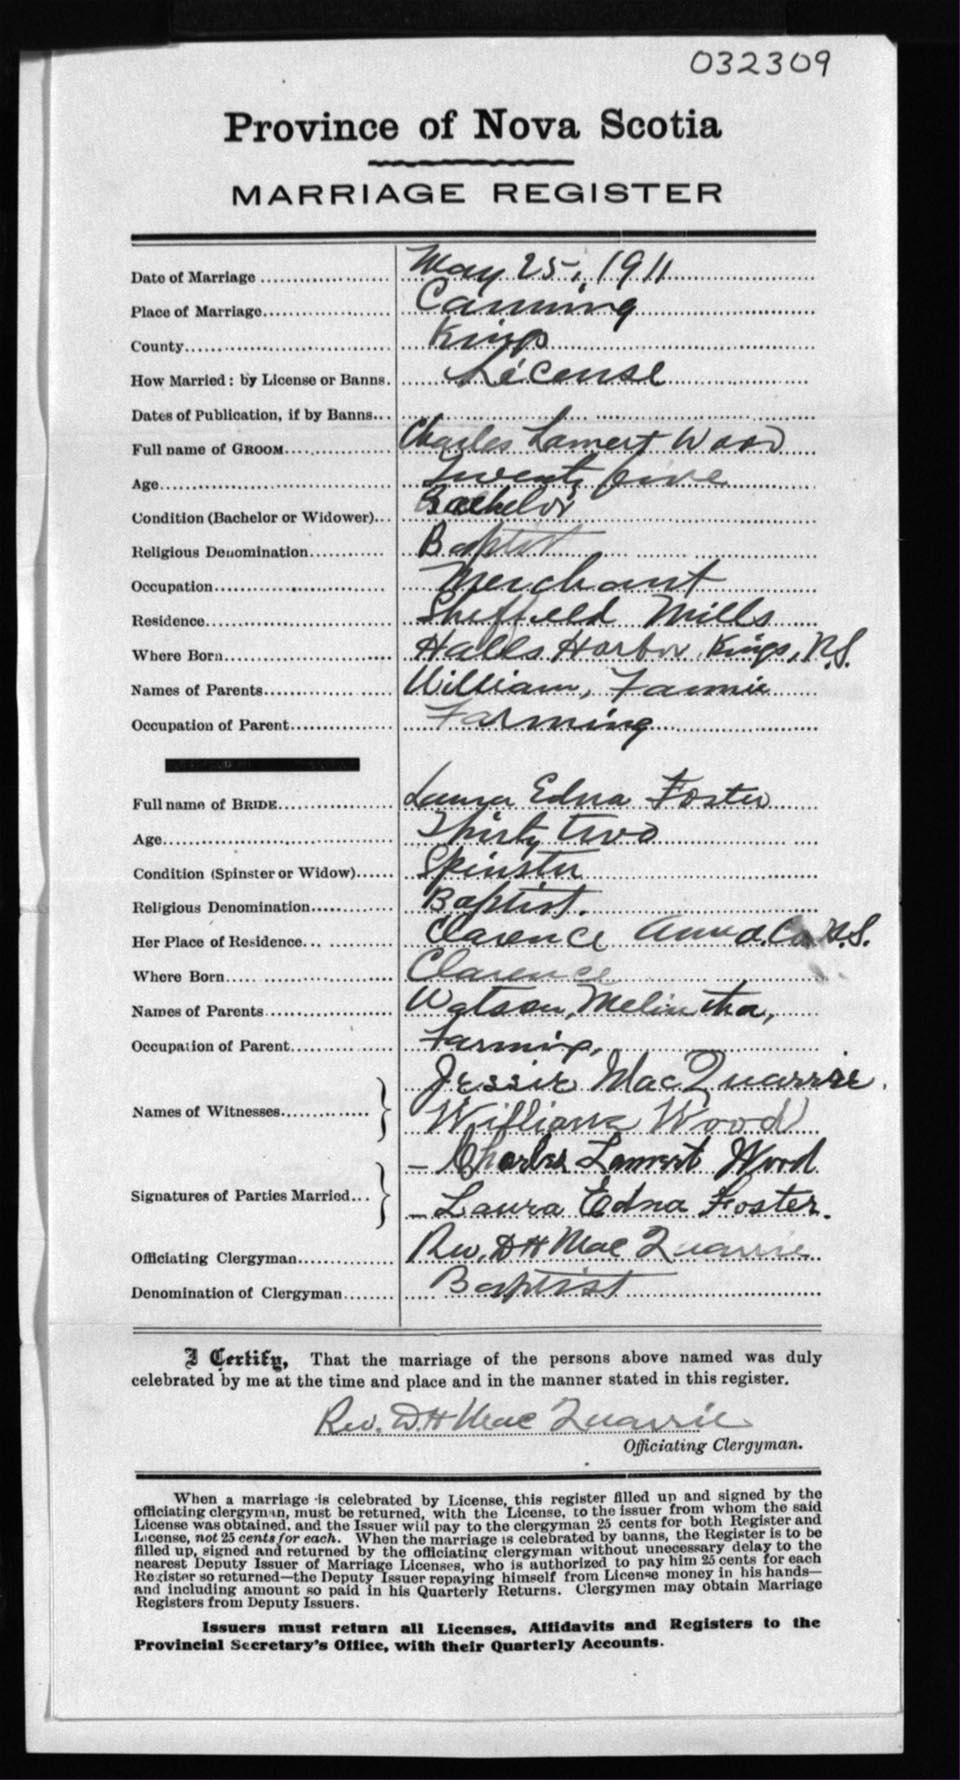 032309
Province of Nova Scotia
MARRIAGE REGISTER
Date of Marriage May 25, 1911
Place of Marriage Canning
County Kings
How Married: by License or Banns. License
Dates of Publication, if by Banns
Full name of GROOM Charles Lamert Wood
Age Twenty five
Condition (Bachelor or Widower) Bachelor
Religious Denomination Baptist
Occupation Merchant
Residence Sheffield Mills
Where Born Halls Harbor, Kings, N.S.
Names of Parents William, Fannie
Occupation of Parent Farming
Full name of BRIDE Laura Edna Foster
Age Thirty two
Condition (Spinster or Widow) Spinster
Religious Denomination Baptist.
Her Place of Residence Clarence Anna. Co N.S.
Where Born Clarence
Names of Parents Watson, Melintha,
Occupation of Parent Farming,
Jessie MacQuarrie.
Names of Witnesses
William Wood
- Charles Lamert Wood
Signatures of Parties Married
- Laura Edna Foster.
Officiating Clergyman Rev. DH MacQuarrie
Denomination of Clergyman Baptist
I Certify, That the marriage of the persons above named was duly
celebrated by me at the time and place and in the manner stated in this register.
Rev. D.H MacQuarrie
Officiating Clergyman.
When a marriage is celebrated by License, this register filled up and signed by the
officiating clergyman, must be returned, with the License, to the issuer from whom the said
License was obtained, and the Issuer will pay to the clergyman 25 cents for both Register and
License, not 25 cents for each. When the marriage is celebrated by banns, the Register is to be
filled up, signed and returned by the officiating clergyman without unnecessary delay to the
nearest Deputy Issuer of Marriage Licenses, who is authorized to pay him 25 cents for each
Register so returned—the Deputy Issuer repaying himself from License money in his hands—
and including amount so paid in his Quarterly Returns. Clergymen may obtain Marriage
Registers from Deputy Issuers.
Issuers must return all Licenses, Affidavits and Registers to the
Provincial Secretary's Office, with their Quarterly Accounts.